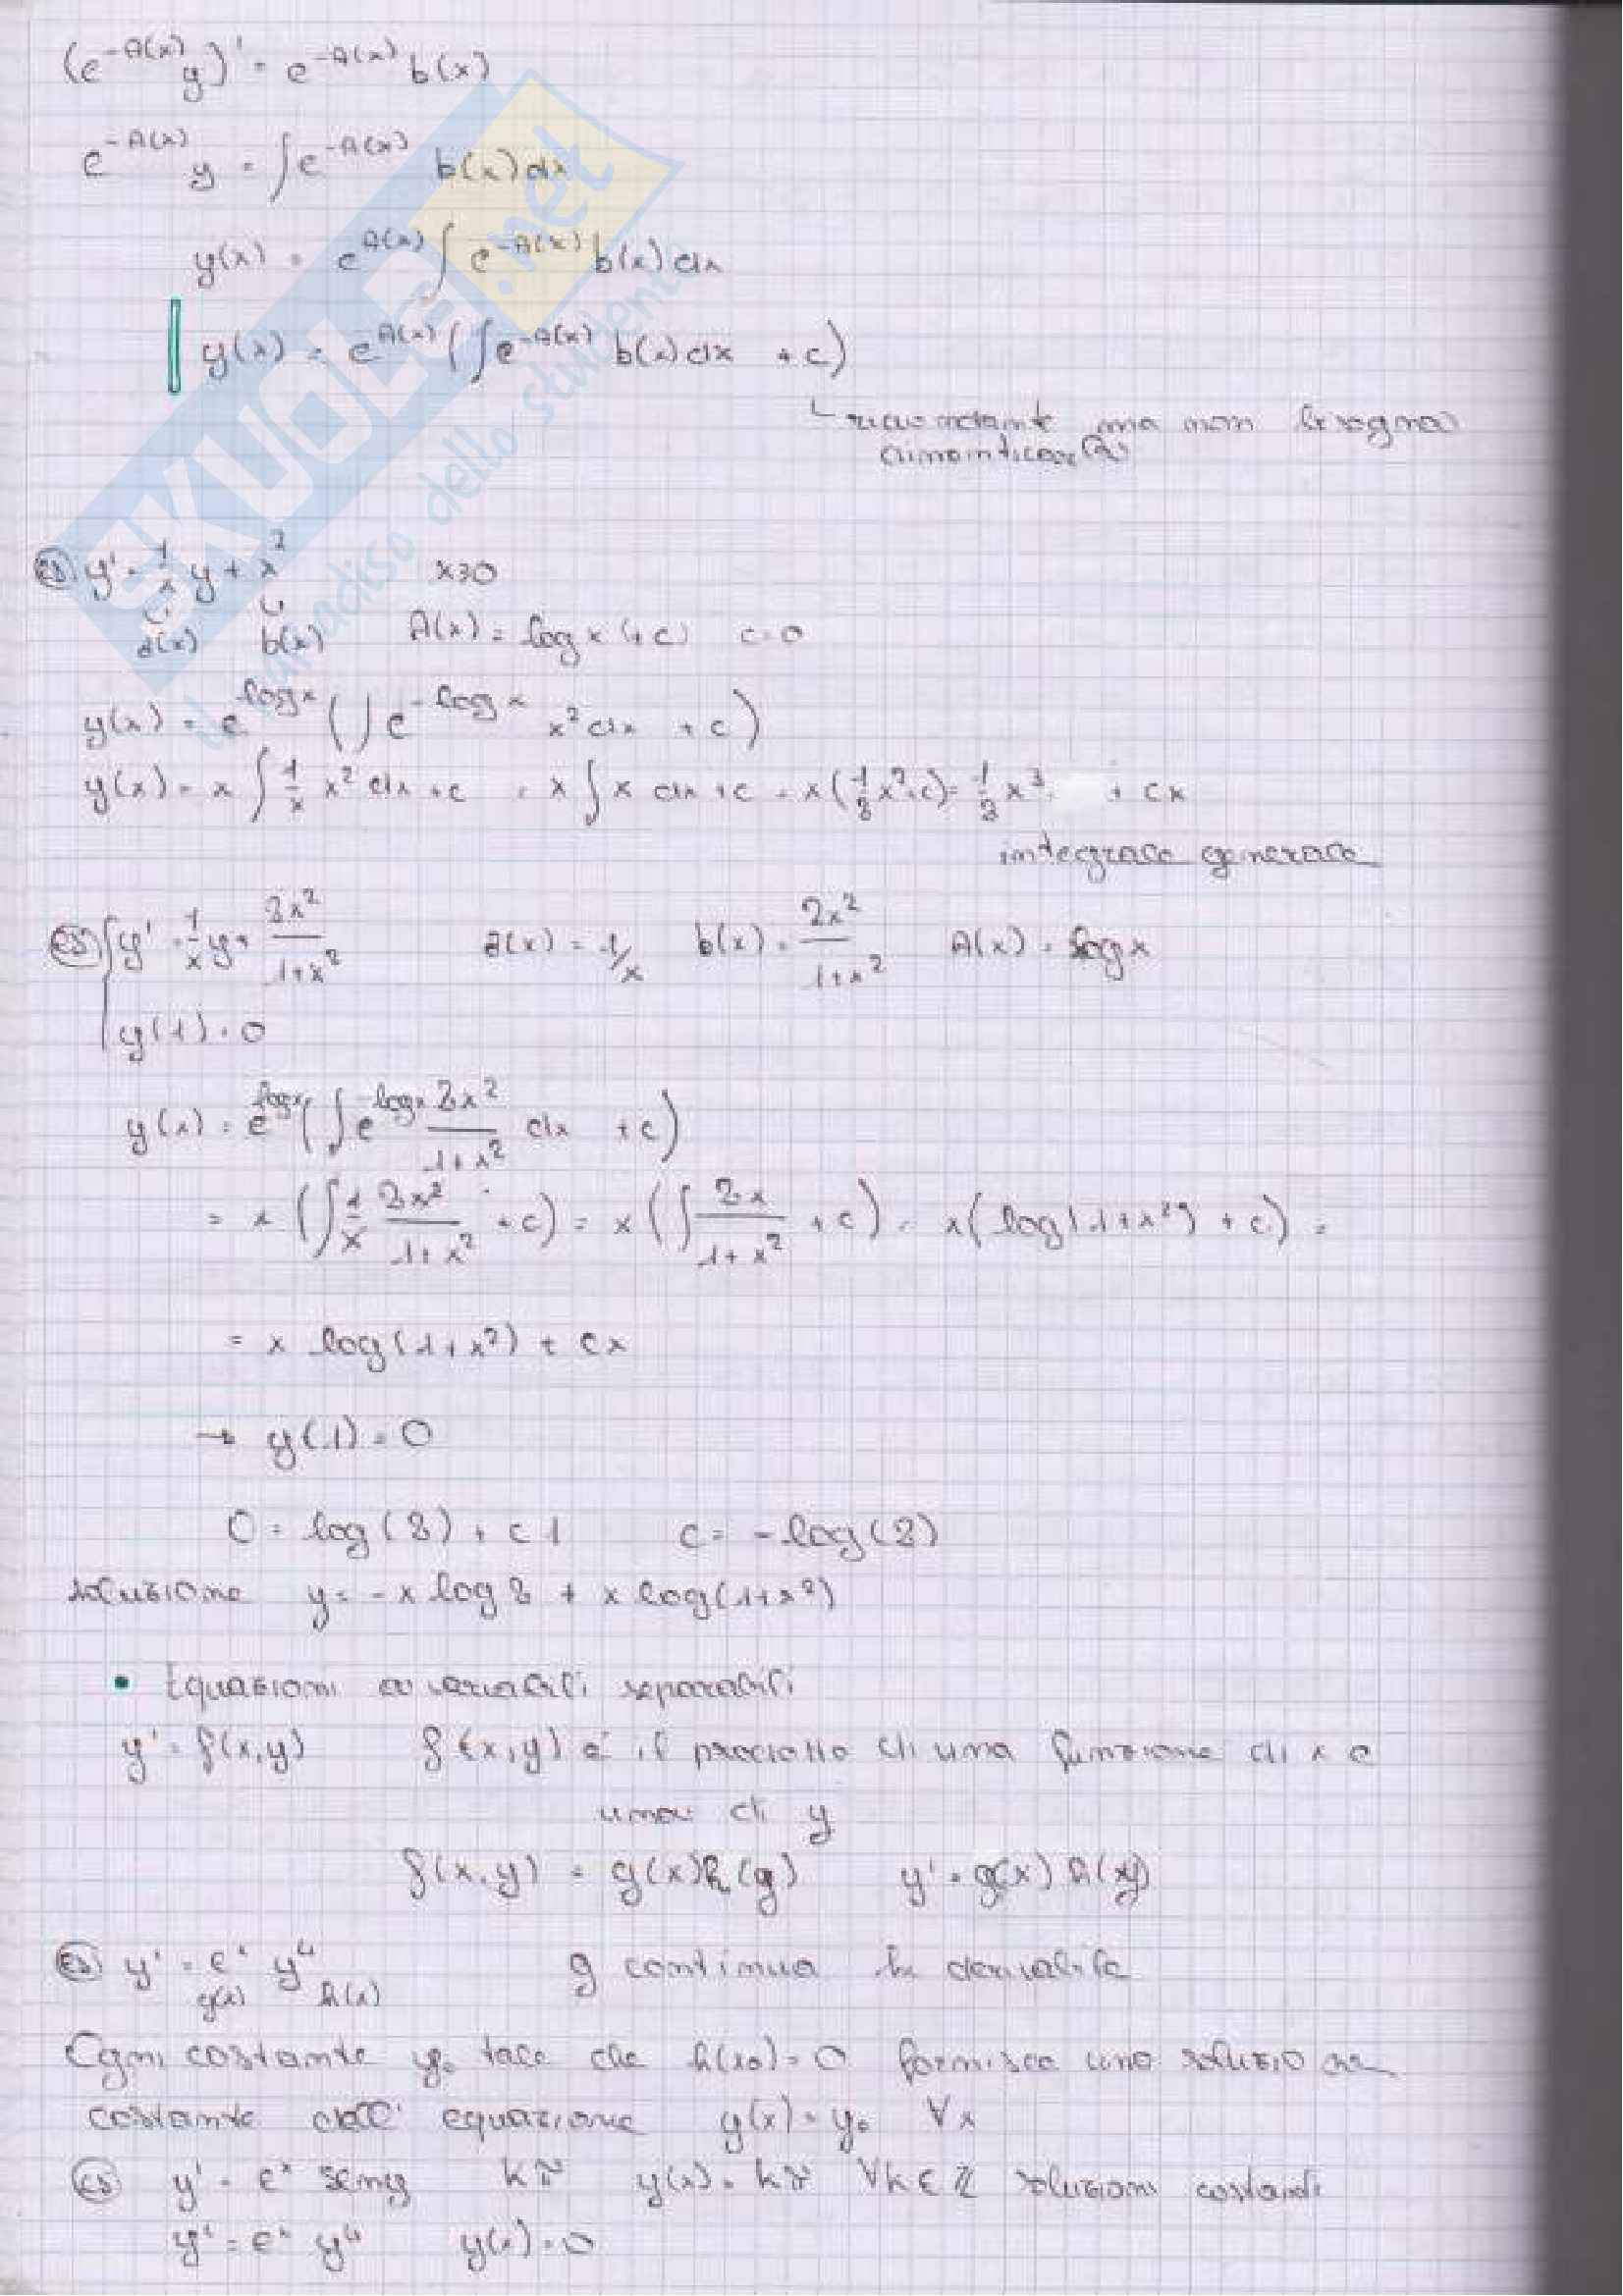 (e^{-A(x)} y)' = e^{-A(x)} b(x)
e^{-A(x)} y = ∫ e^{-A(x)} b(x) dx
y(x) = e^{A(x)} ∫ e^{-A(x)} b(x) dx
y(x) = e^{A(x)} (∫ e^{-A(x)} b(x) dx + c)
ma non bisogna
SKUOLA.net
il paradiso dello studente
Es y' = 1/x y + x^2 x>0
a(x) b(x) A(x) = log x (+c) c=0
y(x) = e^{log x} (∫ e^{-log x} x^2 dx + c)
y(x) = x ∫ 1/x x^2 dx + c = x ∫ x dx + c = x (1/2 x^2 + c) = 1/2 x^3 + cx
integrale generale
Es { y' = 1/x y + 2x^2/(1+x^2) a(x) = 1/x b(x) = 2x^2/(1+x^2) A(x) = log x
y(1) = 0
y(x) = e^{log x} (∫ e^{-log x} 2x^2/(1+x^2) dx + c)
= x (∫ 1/x 2x^2/(1+x^2) + c) = x (∫ 2x/(1+x^2) + c) = x (log(1+x^2) + c) =
= x log(1+x^2) + cx
→ y(1) = 0
0 = log(2) + c1 c = -log(2)
soluzione y = -x log 2 + x log(1+x^2)
• Equazioni a variabili separabili
y' = f(x,y) f(x,y) è il prodotto di una funzione di x e
una di y
f(x,y) = g(x) h(y) y' = g(x) h(y)
Es y' = e^x y^4 g continua h derivabile
g(x) h(x)
Ogni costante y0 tale che h(x0) = 0 fornisce una soluzione
costante dell' equazione y(x) = y0 ∀x
Es y' = e^x seny kπ y(x) = kπ ∀k∈Z soluzioni costanti
y' = e^x y^4 y(x) = 0